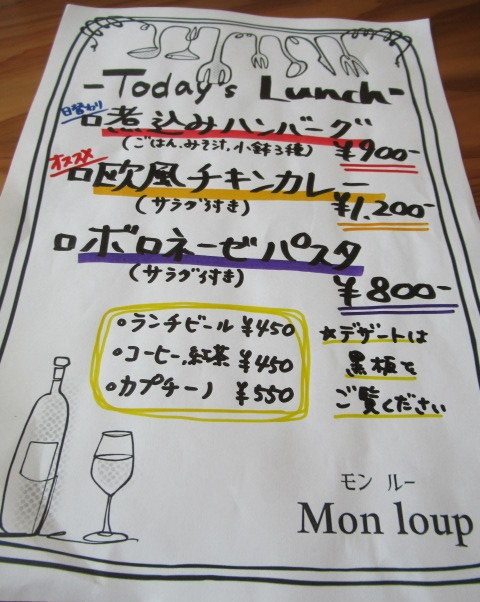 -Today's Lunch-
日替わり
煮込みハンバーグ
(ごはん、みそ汁、小鉢3種) ¥900-
オススメ
欧風チキンカレー
(サラダ付き) ¥1,200-
ボロネーゼパスタ
(サラダ付き) ¥800-
ランチビール ¥450
コーヒー、紅茶 ¥450
カプチーノ ¥550
★デザートは
黒板を
ご覧ください
モン ルー
Mon loup